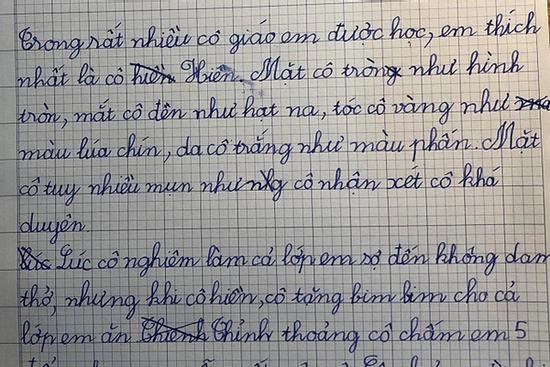 Trong rất nhiều cô giáo em được học, em thích
nhất là cô hiền Hiền. Mặt cô tròng như hình
tròn, mắt cô đên như hạt na, tóc cô vàng như
màu lúa chín, da cô trắng như màu phấn. Mặt
cô tuy nhiều mụn như nxg cô nhận xét cô khá
duyên.
Lúc cô nghiêm lắm cả lớp em sợ đến không dam
thở, nhưng khi cô hiền, cô tặng bim bim cho cả
lớp em ăn Thỉnh thoảng cô chấm em 5